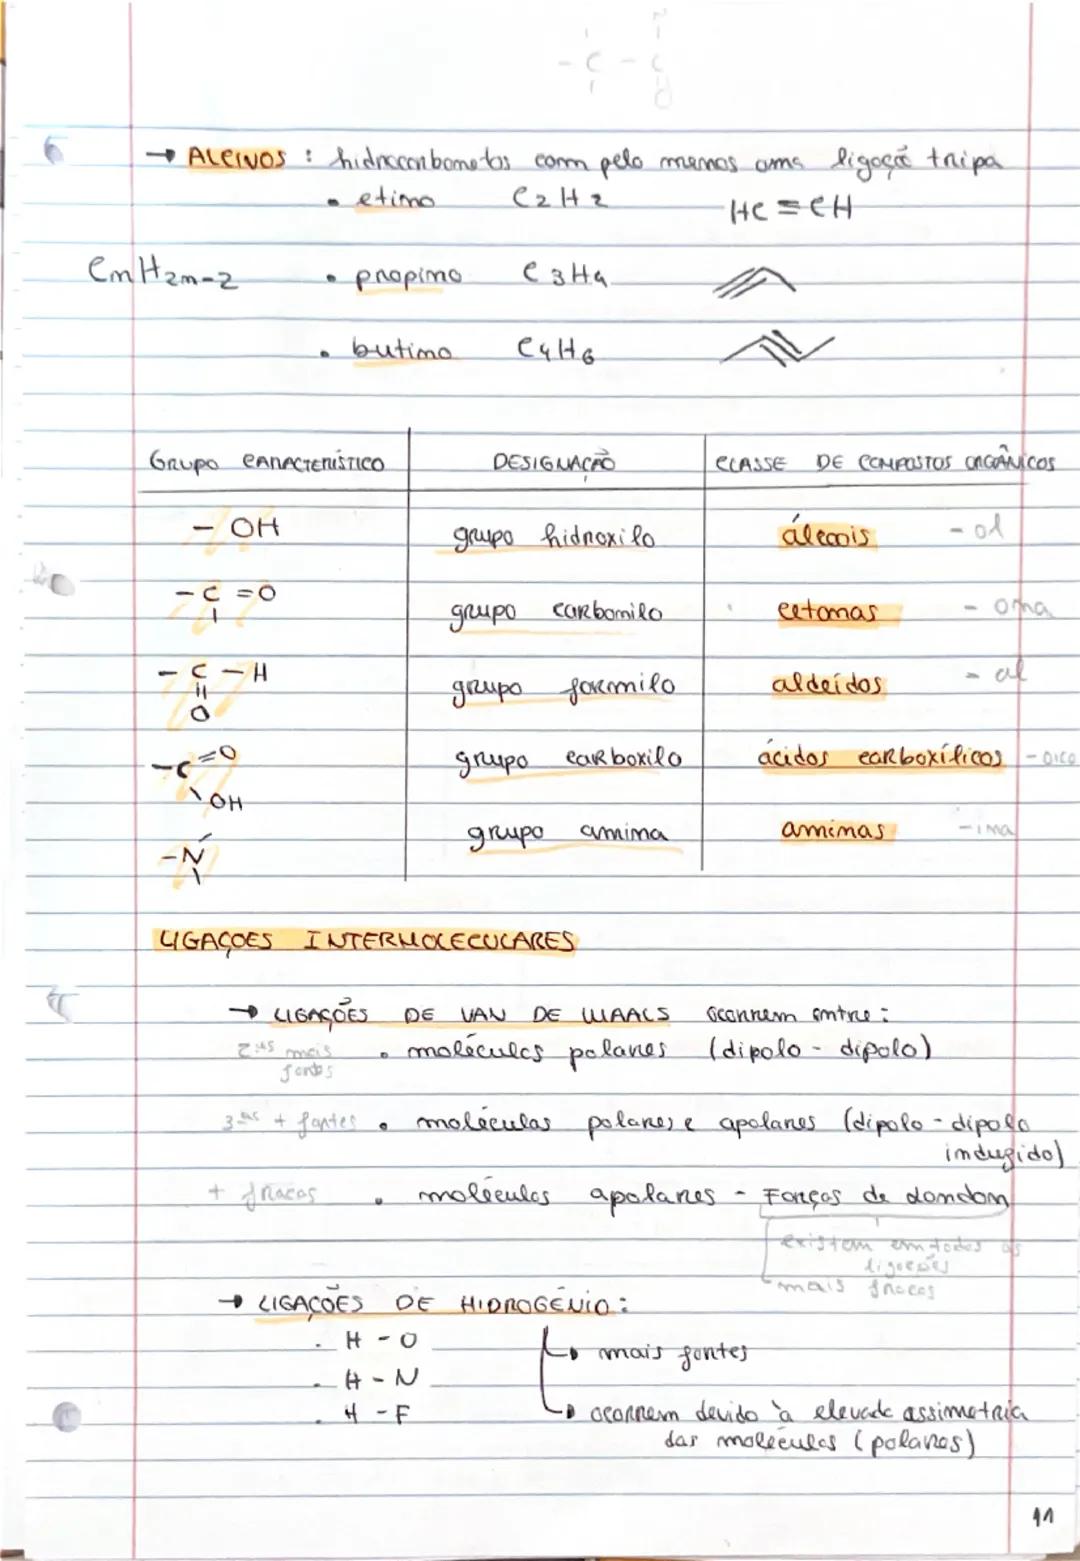 → ALCINOS : hidrocarbonetos com pelo menos uma ligação tripa
• etino C2H2 HC≡CH
CnH2n-2 • propino C3H4
• butino C4H6
GRUPO CARACTERÍSTICO DESIGNAÇÃO CLASSE DE COMPOSTOS ORGÂNICOS
- OH grupo hidroxilo álcoois - ol
- C = O grupo carbonilo cetonas - ona
- C - H grupo formilo aldeídos - al
O
- C = O grupo carboxilo ácidos carboxílicos - oico
OH
- N grupo amina aminas - ina
LIGAÇÕES INTERMOLECULARES
→ LIGAÇÕES DE VAN DE WAALS ocorrem entre :
2ªs mais • moléculas polares (dipolo - dipolo)
fortes
3ªs + fortes • moléculas polares e apolares (dipolo - dipolo
induzido)
+ fracas • moléculas apolares - Forças de london
existem em todas as
ligações
mais fracas
→ LIGAÇÕES DE HIDROGÉNIO :
. H - O → mais fortes
. H - N
. H - F → ocorrem devido à elevada assimetria
das moléculas (polares)
11